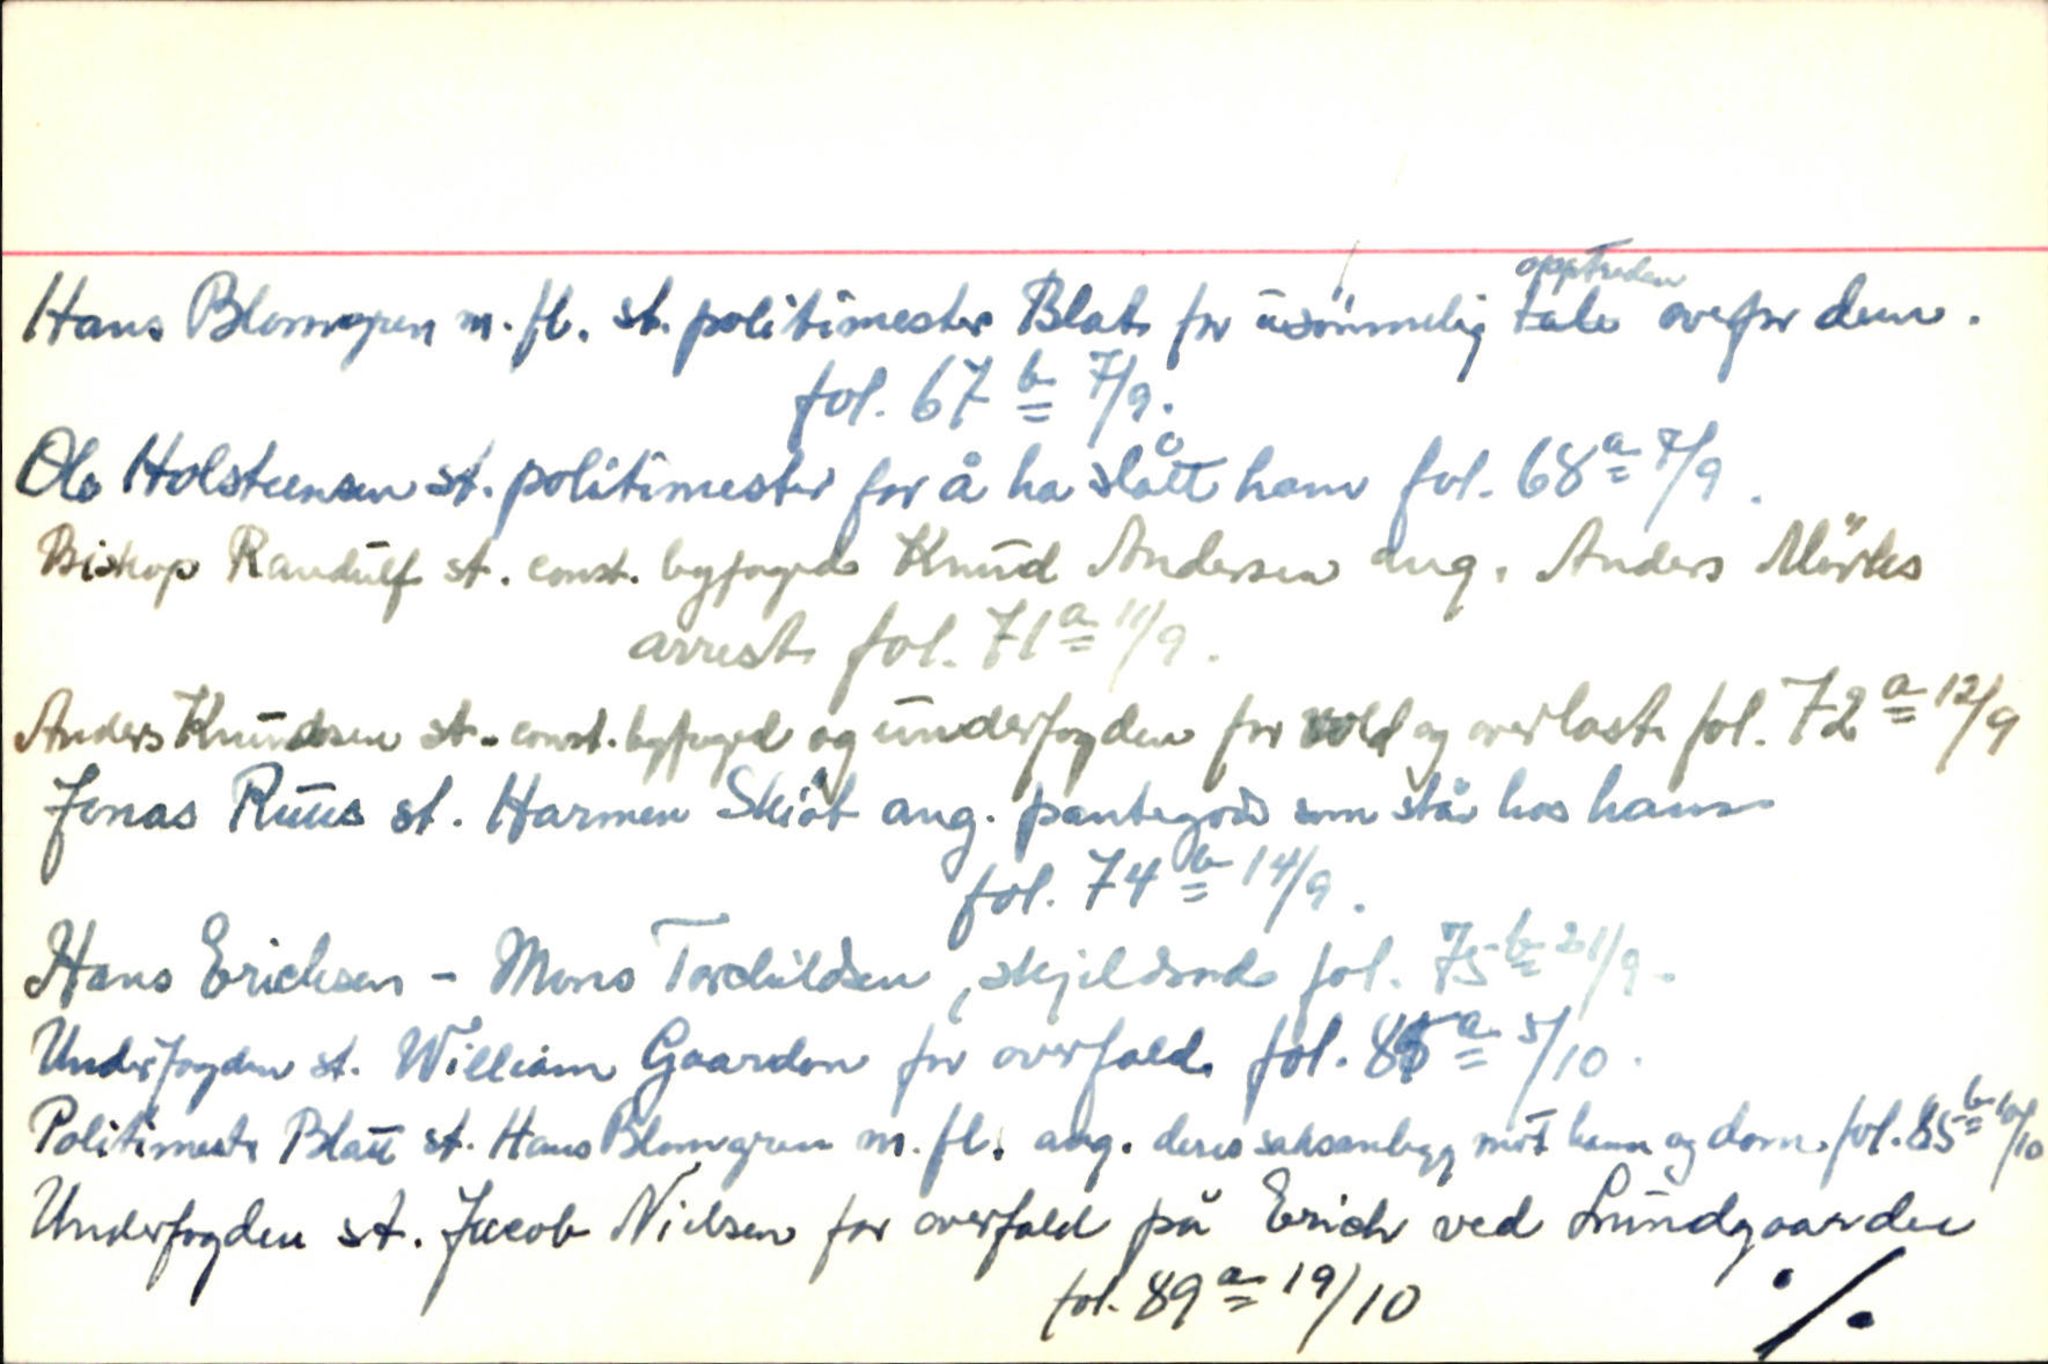 opptreden
Hans Blomgren m. fl. st. politimester Blat for usömmelig tale overfor dem.
fol. 67 b 7/9.
Ole Holsteensen st. politimester for å ha slått ham fol. 68 a 7/9.
Biskop Randulf st. const. byfoged Knud Andersen ang. Anders Mörks
arrest fol. 71 a 11/9.
Anders Knudsen st. const. byfoged og underfogden for vold og overlast fol. 72 a 12/9
Jonas Ruus st. Harmen Skiöt ang. pantegods som står hos ham
fol. 74 b 14/9.
Hans Erichsen - Mons Torchildsen, skjeldsord fol. 75 b 21/9.
Underfogden st. William Gaardon for overfald fol. 85 a 5/10.
Politimester Blatt st. Hans Blomgren m. fl. ang. deres saksanlegg mot ham og dom. fol. 85 b 10/10
Underfogden st. Jacob Nielsen for overfald på Erich ved Lundgaarden
fol. 89 a 19/10 ./.